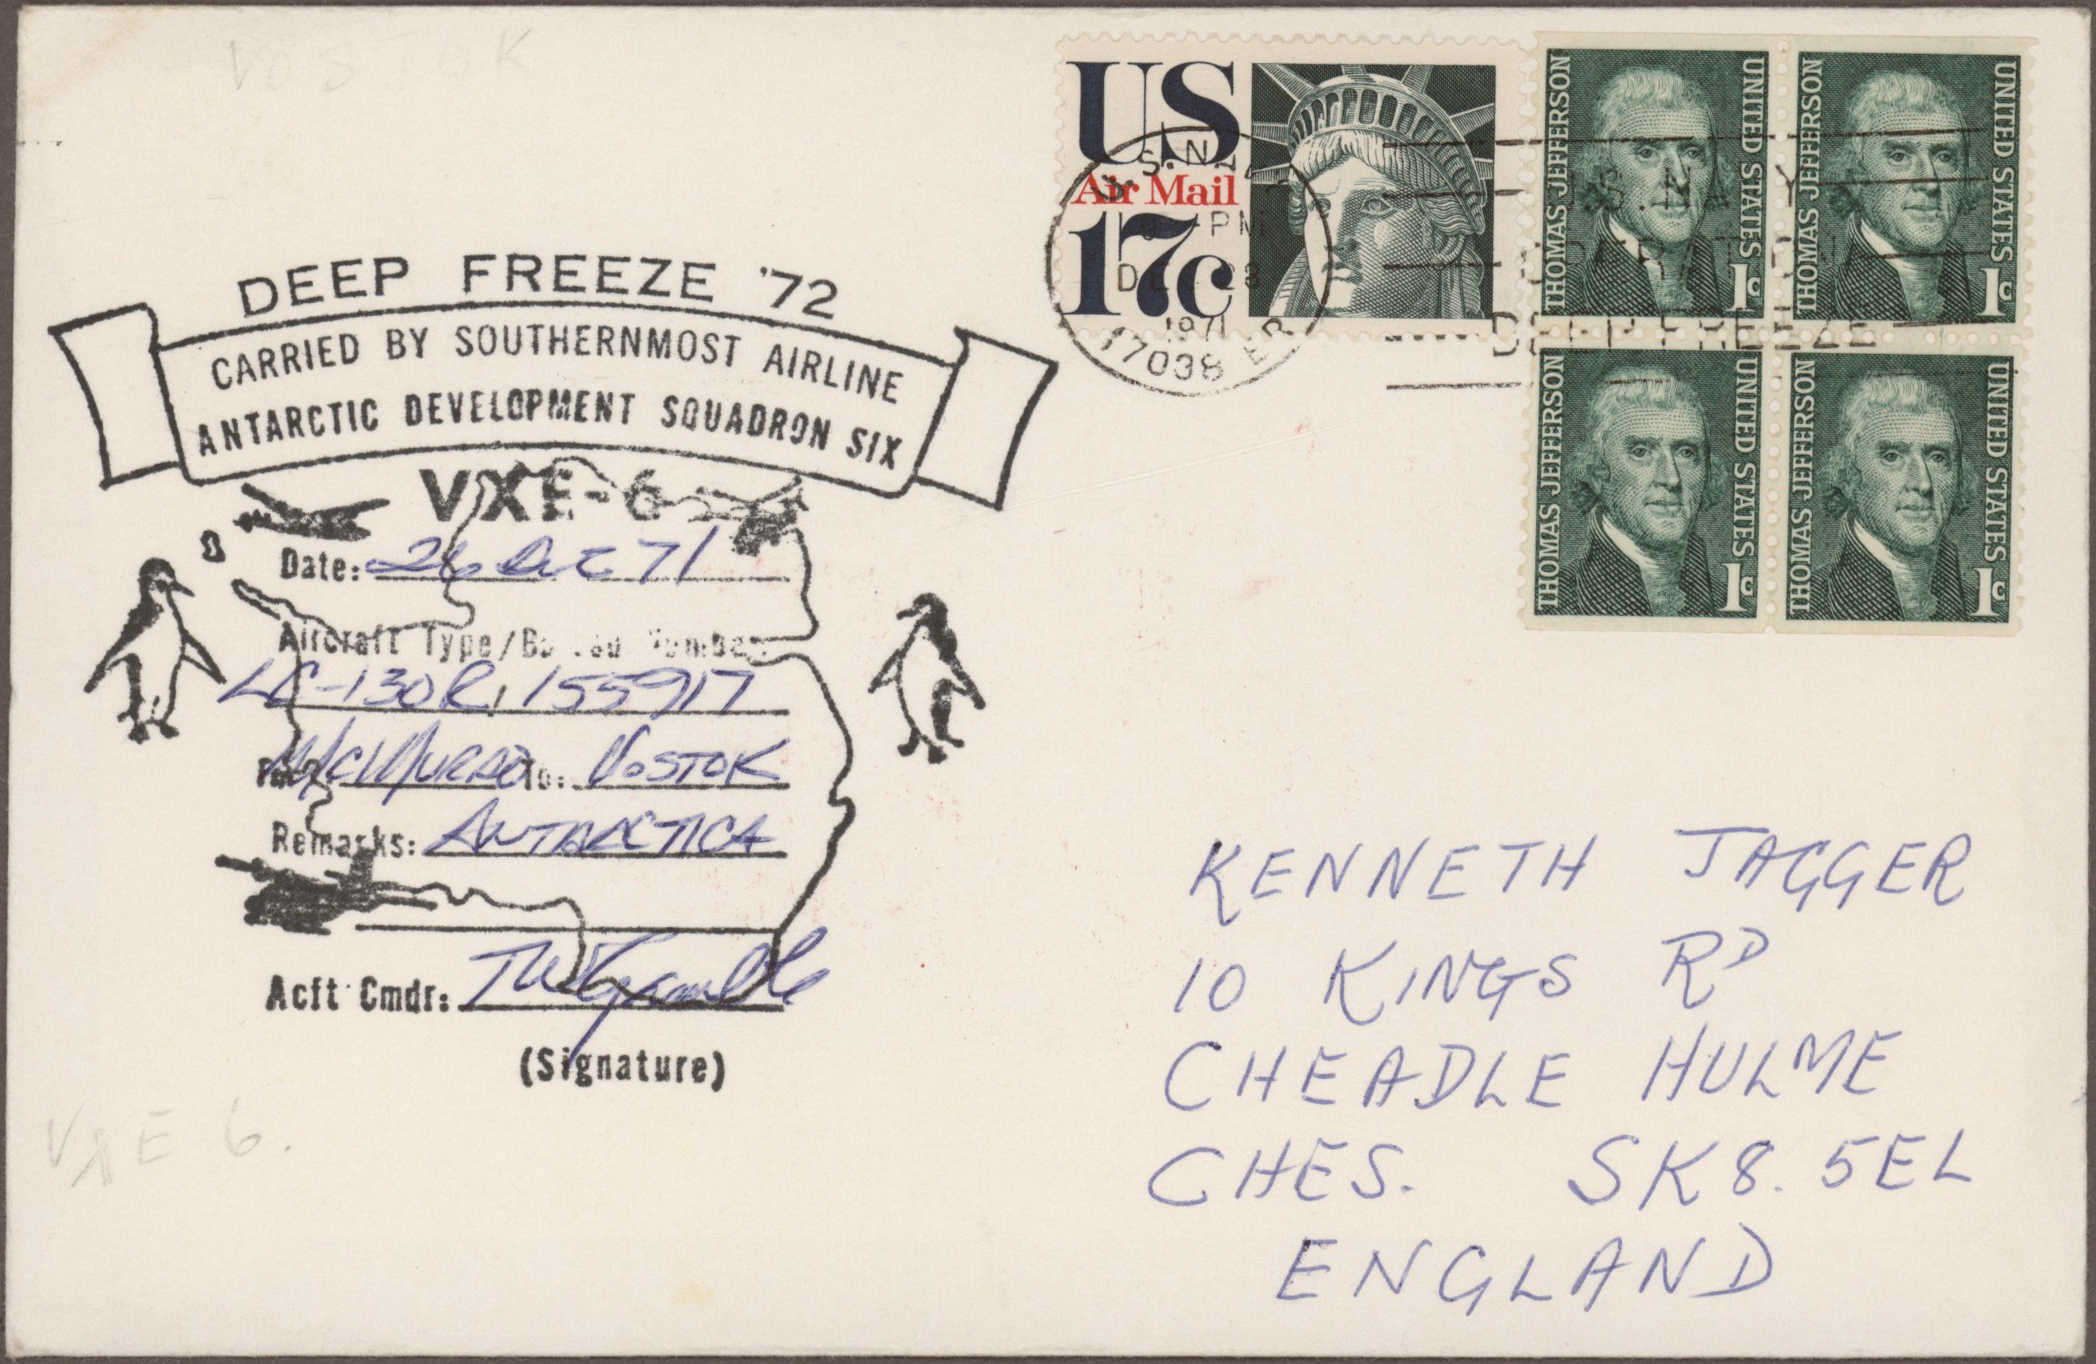 VOSTOK
US
Air Mail
17c
THOMAS JEFFERSON
UNITED STATES
1c
THOMAS JEFFERSON
UNITED STATES
1c
THOMAS JEFFERSON
UNITED STATES
1c
THOMAS JEFFERSON
UNITED STATES
1c
PM
1971
17038
U.S. NAVY
OPERATION
DEEP FREEZE
DEEP FREEZE '72
CARRIED BY SOUTHERNMOST AIRLINE
ANTARCTIC DEVELOPMENT SQUADRON SIX
VXE-6
Date: 26 Dec 71
Aircraft Type/Bureau Number
LC-130R, 155917
McMURDO To: VOSTOK
Remarks: ANTARCTICA
Acft Cmdr:
(Signature)
VXE 6.
KENNETH JAGGER
10 KINGS RD
CHEADLE HULME
CHES. SK8. 5EL
ENGLAND